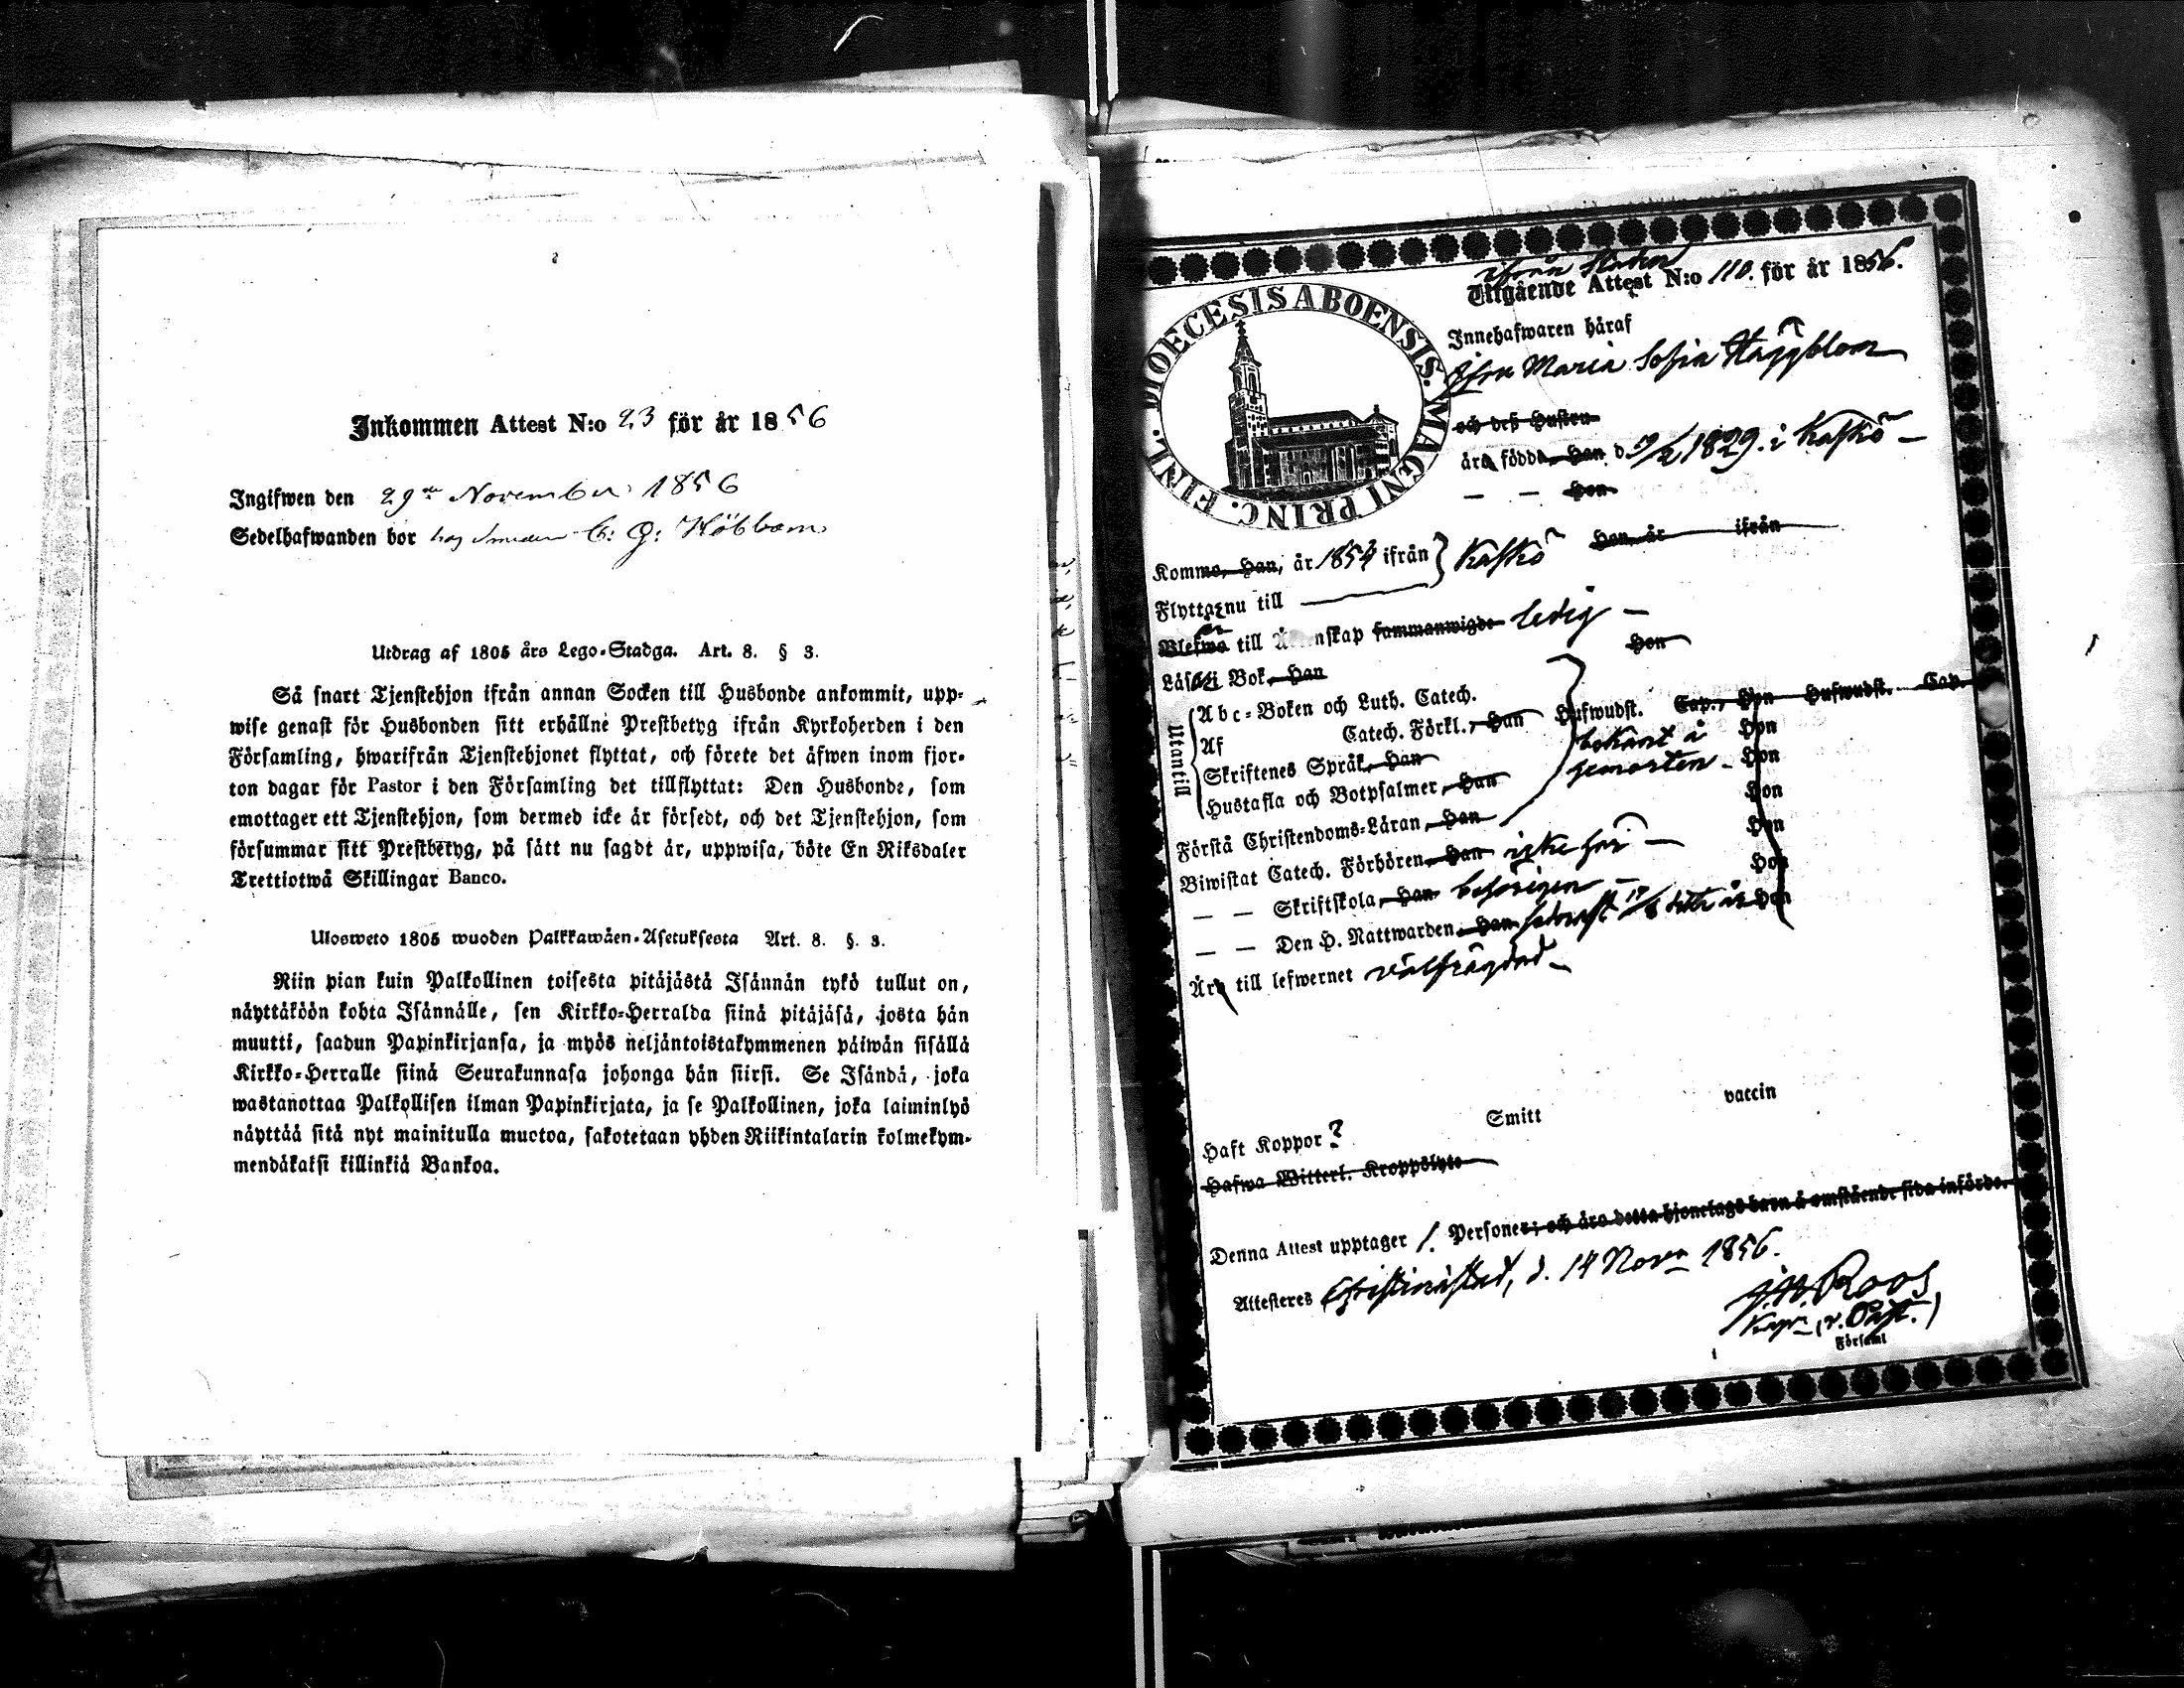 Inkommen Attest N:o 23 för år 1856
Ingifwen den 29de November 1856
Sedelhafwanden bor hos Smeden C: G:
Utdrag af 1805 års Lego-Stadga. Art. 8. § 3.
Så snart Tjenstehjon ifrån annan Socken till Husbonde ankommit, upp-
wise genast för Husbonden sitt erhållne Prestbetyg ifrån Kyrkoherden i den
Församling, hwarifrån Tjenstehjonet flyttat, och förete det äfwen inom fjor-
ton dagar för Pastor i den Församling det tillflyttat: Den Husbonde, som
emottager ett Tjenstehjon, som dermed icke är försedt, och det Tjenstehjon, som
försummar sitt Prestbetyg, på sätt nu sagdt är, uppwisa, böte En Riksdaler
Trettiotwå Skillingar Banco.
Ulosweto 1805 wuoden Palkkawäen-Asetuksesta Art. 8. §. 3.
Niin pian kuin Palkollinen toisesta pitäjästä Isännän tykö tullut on,
näyttäköön kohta Isännälle, sen Kirkko-Herralda siinä pitäjäsä, josta hän
muutti, saadun Papinkirjansa, ja myös neljäntoistakymmenen päiwän sisällä
Kirkko-Herralle siinä Seurakunnasa johonga hän siirsi. Se Isändä, joka
wastanottaa Palkollisen ilman Papinkirjata, ja se Palkollinen, joka laiminlyö
näyttää sitä nyt mainitulla muotoa, sakotetaan yhden Riikintalarin kolmekym-
mendäkaksi killinkiä Bankoa.
DIOECESIS ABOENSIS. MAGNI PRINC. FINL.
ifrån
Utgående Attest N:o 110. för år 1856.
Innehafwaren häraf
Maria Sofia Häggblom
och deß Hustru
äro födde, Han d. 1829. i Kaskö
— — Hon
Kommo, Han, år 1854 ifrån Kaskö Hon år ifrån
Flytta nu till
är
Blefwo till skap sammanwigde ledig —
Läsa i Bok, Han Hon
Utantill
Abc-Boken och Luth. Catech.
Af Catech. Förkl., Han Hufwudst. Cap., Hon Hufwudst. Cap.
Skriftenes Språk, Han bekant i Hon
Hustafla och Botpsalmer, Han Hon
Förstå Christendoms-Läran, Han Hon
Biwistat Catech. Förhören, Han icke här — Hon
— — Skriftskola, Han behörigen — Hon
— — Den H. Nattwarden, Han sednast 17/8 detta år Hon
Äro till lefwernet välfrägdad —
Haft Koppor ? Smitt vaccin
Hafwa Witterl. Kroppslyte
Denna Attest upptager 1. Personer; och äro detta hjonelags barn å omstående sida införde.
Attesteres Christinæstad, d. 14 Novr 1856.
Roos
Kapn. (v. Past.)
Församl